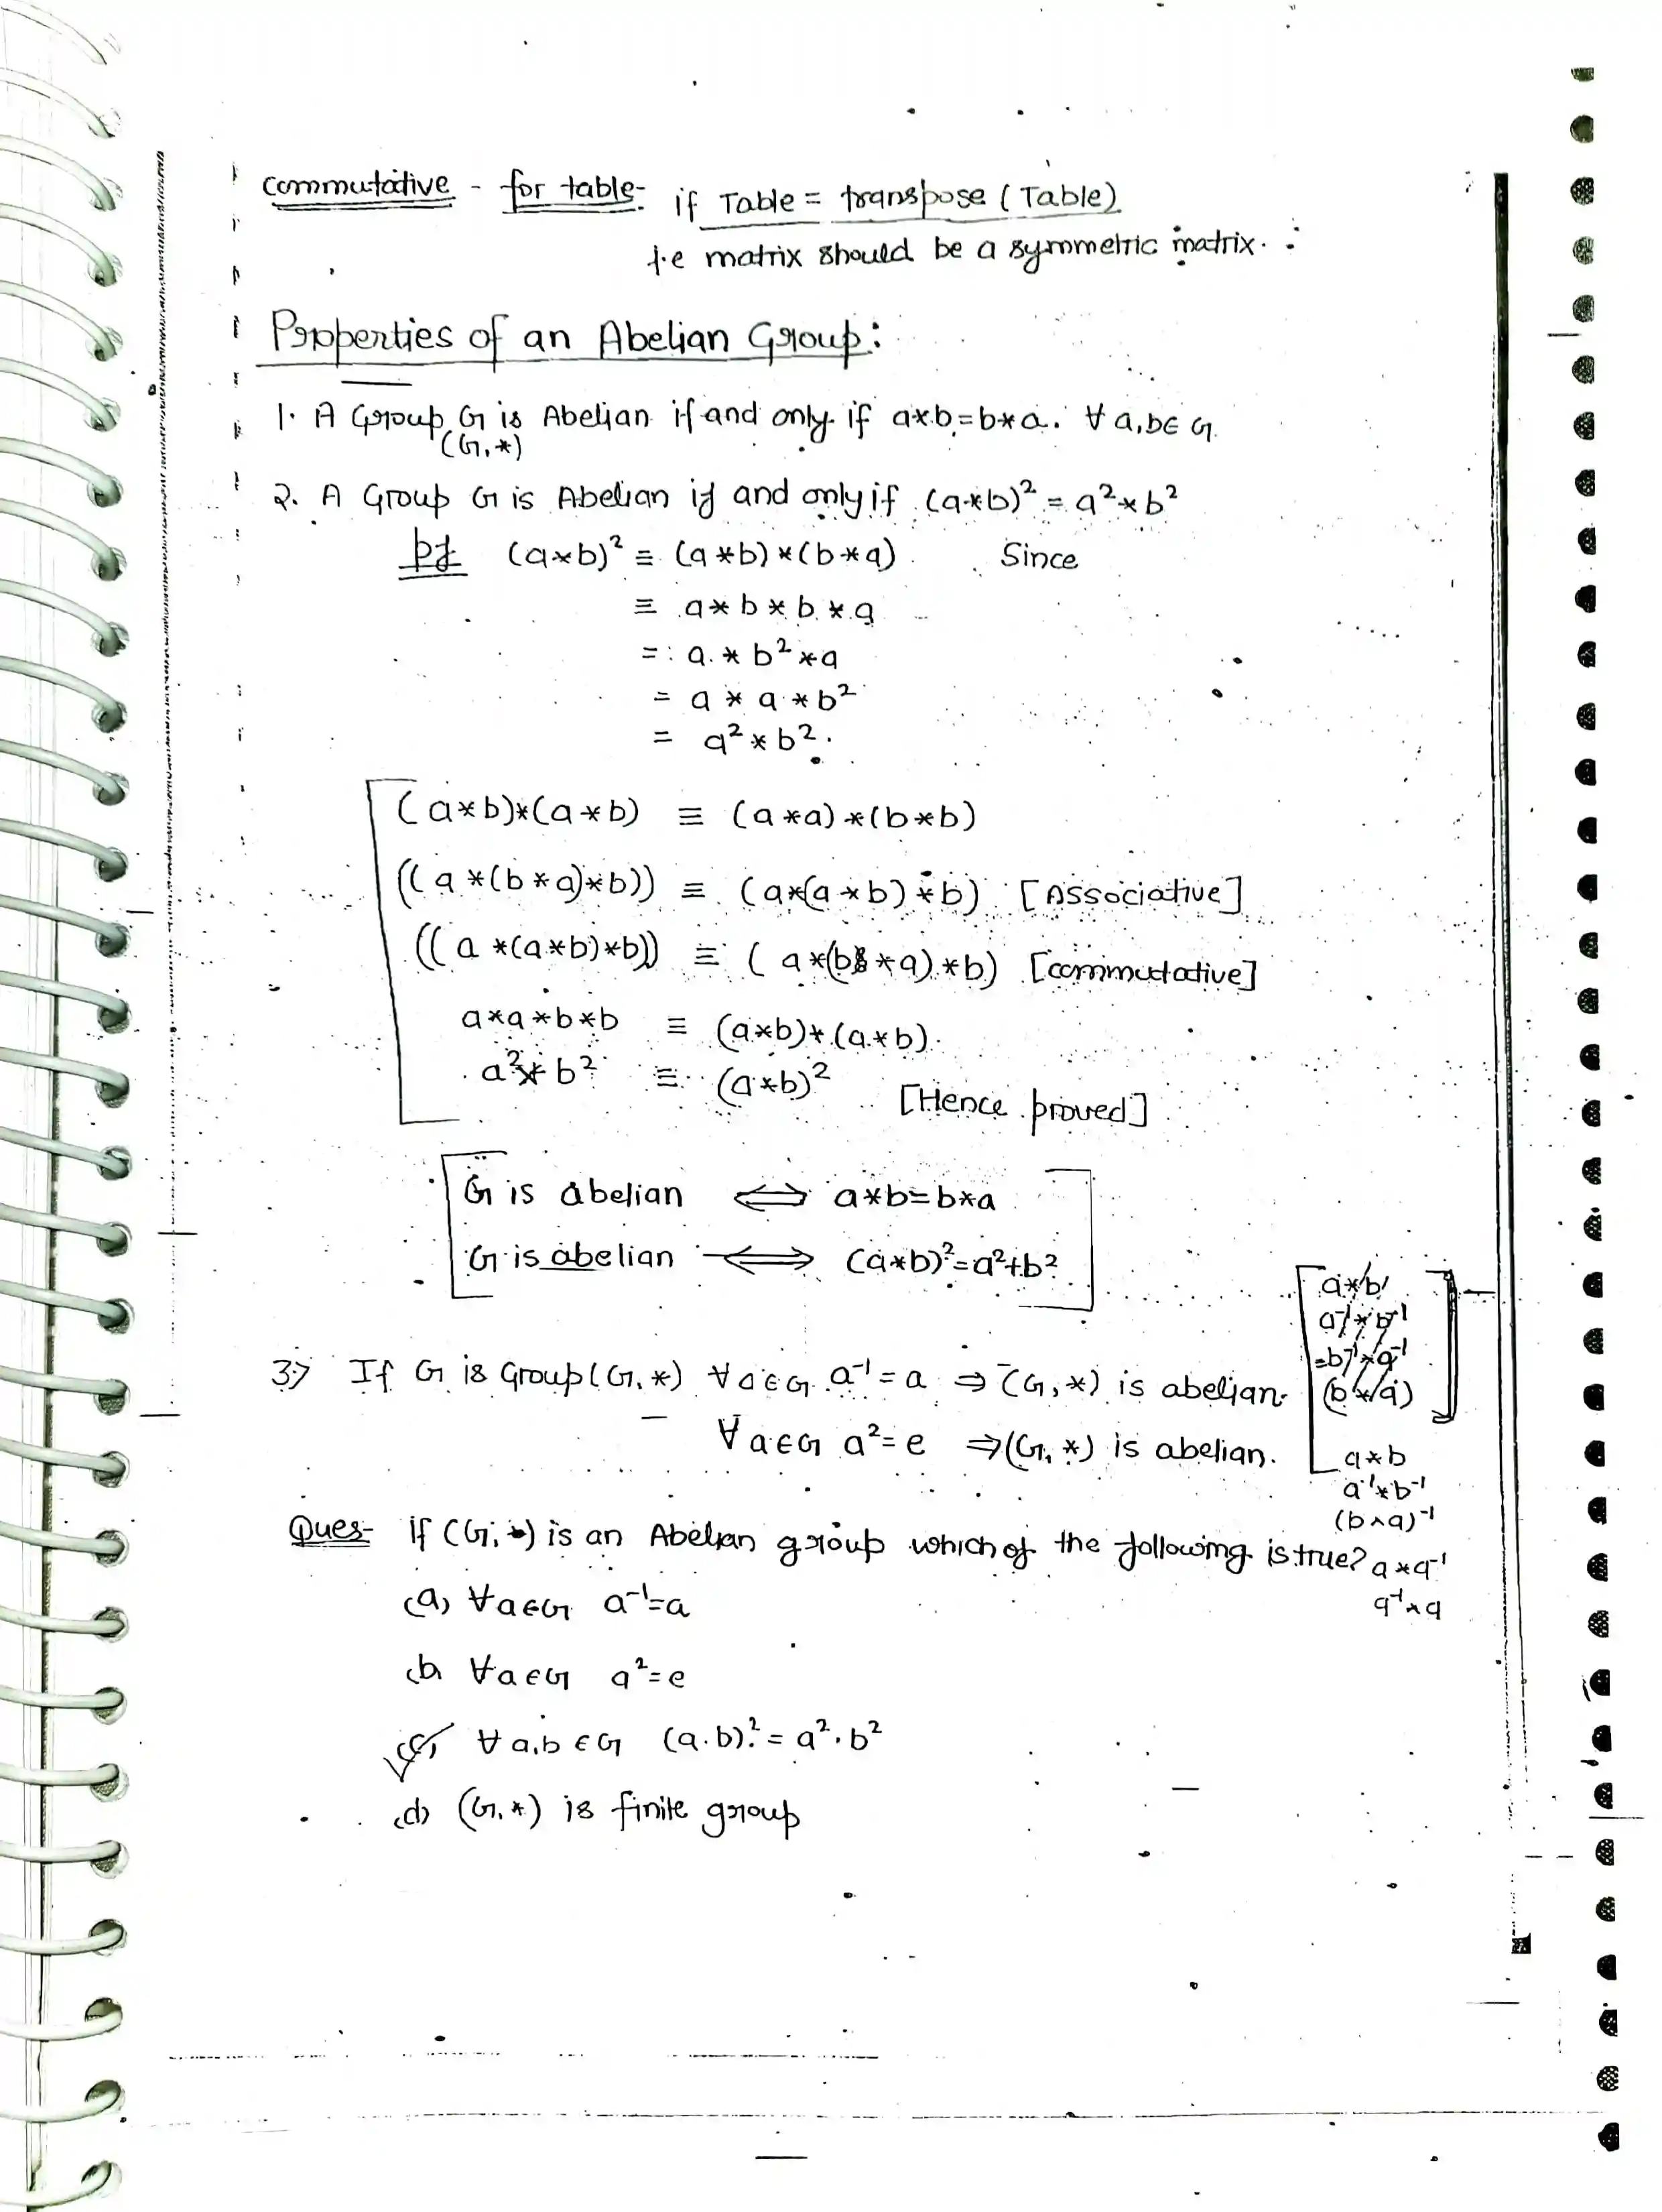 commutative - for table- if Table = transpose (Table)
i.e matrix should be a symmetric matrix.
Properties of an Abelian Group:
1. A Group G is Abelian if and only if a*b=b*a. ∀ a,b∈ G.
(G,*)
2. A Group G is Abelian if and only if (a*b)² = a²*b²
pf (a*b)² ≡ (a*b)*(b*a) Since
≡ a*b*b*a
= a*b²*a
= a*a*b²
= a²*b².
(a*b)*(a*b) ≡ (a*a)*(b*b)
((a*(b*a)*b)) ≡ (a*(a*b)*b) [Associative]
((a*(a*b)*b)) ≡ (a*(b*a)*b) [commutative]
a*a*b*b ≡ (a*b)*(a*b).
a²*b² ≡ (a*b)² [Hence proved]
G is abelian ⟺ a*b=b*a
G is abelian ⟺ (a*b)²=a²+b²
a*b
a⁻¹*b⁻¹
=b⁻¹*a⁻¹
(b*a)
3.) If G is Group(G,*) ∀a∈G a⁻¹=a ⇒ (G,*) is abelian.
∀a∈G a²=e ⇒(G,*) is abelian.
a*b
a⁻¹*b⁻¹
(b*a)⁻¹
a*a⁻¹
a⁻¹*a
Ques- if (G,*) is an Abelian group which of the following is true?
(a) ∀a∈G a⁻¹=a
(b) ∀a∈G a²=e
(c) ∀ a,b ∈G (a.b)² = a².b²
(d) (G,*) is finite group